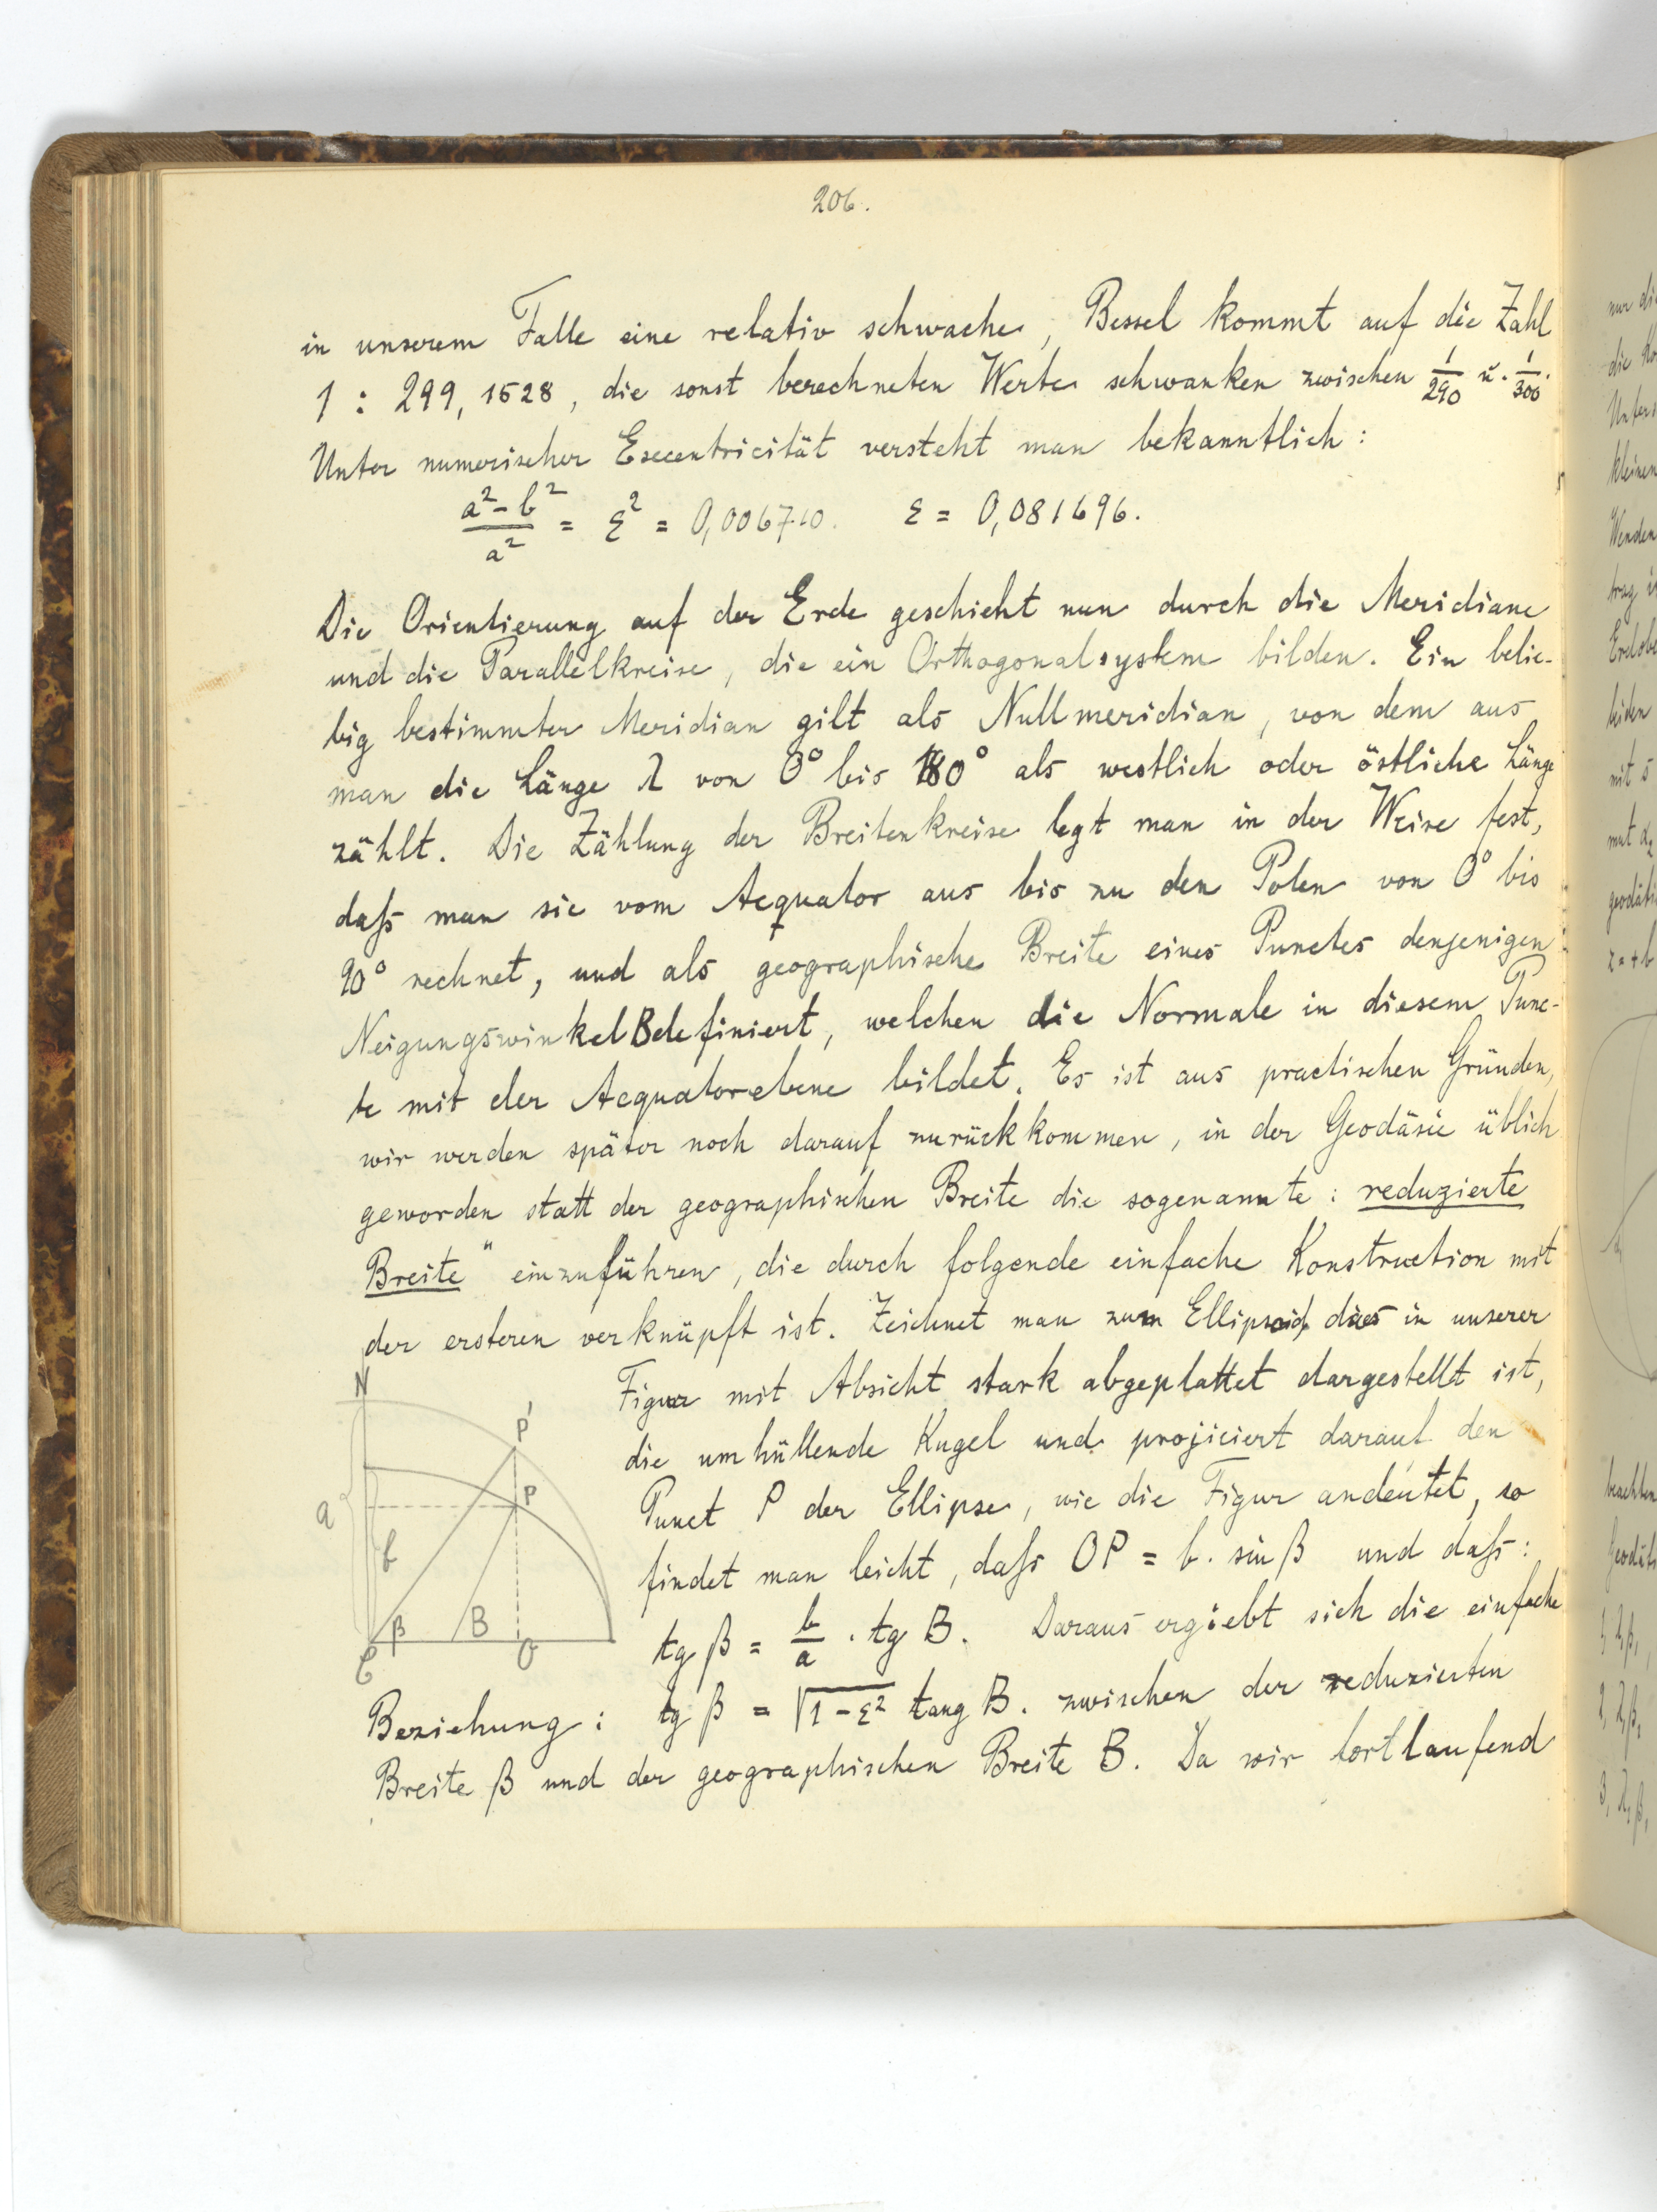 206.
in unserem Falle eine relativ schwache, Bessel kommt auf die Zahl
1 : 299,1528, die sonst berechneten Werte schwanken zwischen 1/290 u. 1/300.
Unter numerischer Excentricität versteht man bekanntlich:
(a² - b²)/a² = ε² = 0,006710. ε = 0,081696.
Die Orientierung auf der Erde geschieht nun durch die Meridiane
und die Parallelkreise, die ein Orthogonalsystem bilden. Ein belie-
big bestimmter Meridian gilt als Nullmeridian, von dem aus
man die Länge λ von 0° bis 180° als westlich oder östliche Länge
zählt. Die Zählung der Breitenkreise legt man in der Weise fest,
daß man sie vom Aequator aus bis zu den Polen von 0° bis
90° rechnet, und als geographische Breite eines Punctes denjenigen
Neigungswinkel B definiert, welchen die Normale in diesem Punc-
te mit der Aequatorebene bildet. Es ist aus practischen Gründen,
wir werden später noch darauf zurückkommen, in der Geodäsie üblich
geworden statt der geographischen Breite die sogenannte : reduzierte
Breite" einzuführen, die durch folgende einfache Konstruction mit
der ersteren verknüpft ist. Zeichnet man zum Ellipsoid, das in unserer
Figur mit Absicht stark abgeplattet dargestellt ist,
die umhüllende Kugel und projiciert darauf den
Punct P der Ellipse, wie die Figur andeutet, so
findet man leicht, daß OP = b. sin β und daß:
tg β = b/a . tg B. Daraus ergiebt sich die einfache
Beziehung: tg β = √(1-ε²) tang B. zwischen der reduzierten
Breite β und der geographischen Breite B. Da wir fortlaufend
N
P'
P
a
b
β
B
C
O